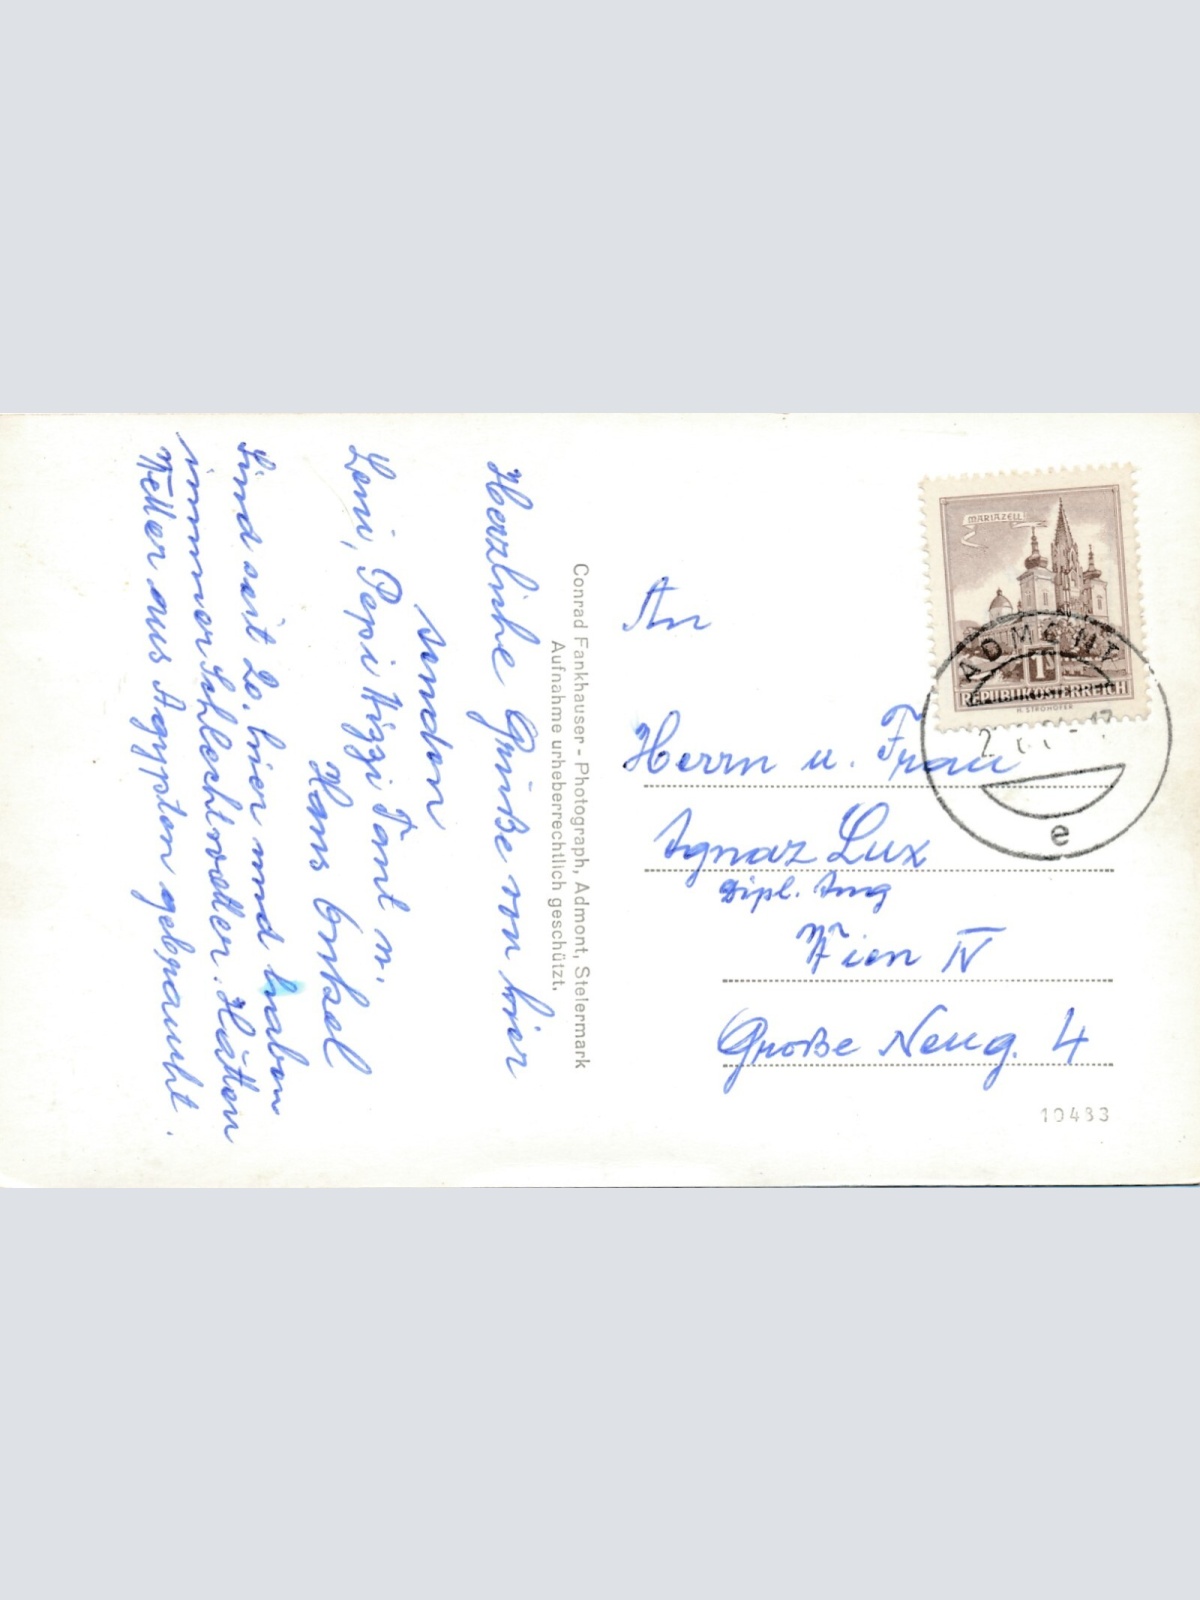 Herzliche Grüße von hier
senden
Leni, Pepi Tant u.
Hans Onkel
Sind seit 20. hier und haben
immer Schlechtwetter. Hätten
Wetter aus Ägypten gebraucht.
Conrad Fankhauser - Photograph, Admont, Steiermark
Aufnahme urheberrechtlich geschützt.
MARIAZELL
1S
REPUBLIK ÖSTERREICH
H. STROHOFER
ADMONT
e
An
Herrn u. Frau
Ignaz Lux
Dipl. Ing
Wien IV
Große Neug. 4
10483